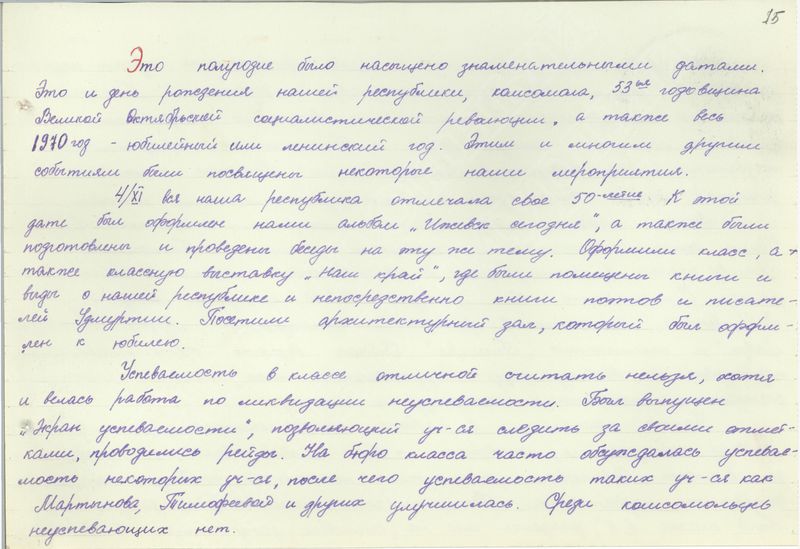 15
Это полугодие было насыщено знаменательными датами.
Это и день рождения нашей республики, комсомола, 53ая годовщина
Великой Октябрьской социалистической революции, а также весь
1970 год - юбилейный или ленинский год. Этим и многим другим
событиям были посвящены некоторые наши мероприятия.
4/XI вся наша республика отмечала свое 50-летие. К этой
дате был оформлен нами альбом „Ижевск сегодня", а также были
подготовлены и проведены беседы на эту же тему. Оформили класс, а
также классную выставку „Наш край", где были помещены книги и
виды о нашей республике и непосредственно книги поэтов и писате-
лей Удмуртии. Посетили архитектурный зал, который был оформ-
лен к юбилею.
Успеваемость в классе отличной считать нельзя, хотя
и велась работа по ликвидации неуспеваемости. Был выпущен
„Экран успеваемости", позволяющий уч-ся следить за своими отмет-
ками, проводились рейды. На бюро класса часто обсуждалась успевае-
мость некоторых уч-ся, после чего успеваемость таких уч-ся как
Мартынова, Тимофеевой и других улучшилась. Среди комсомольцев
неуспевающих нет.